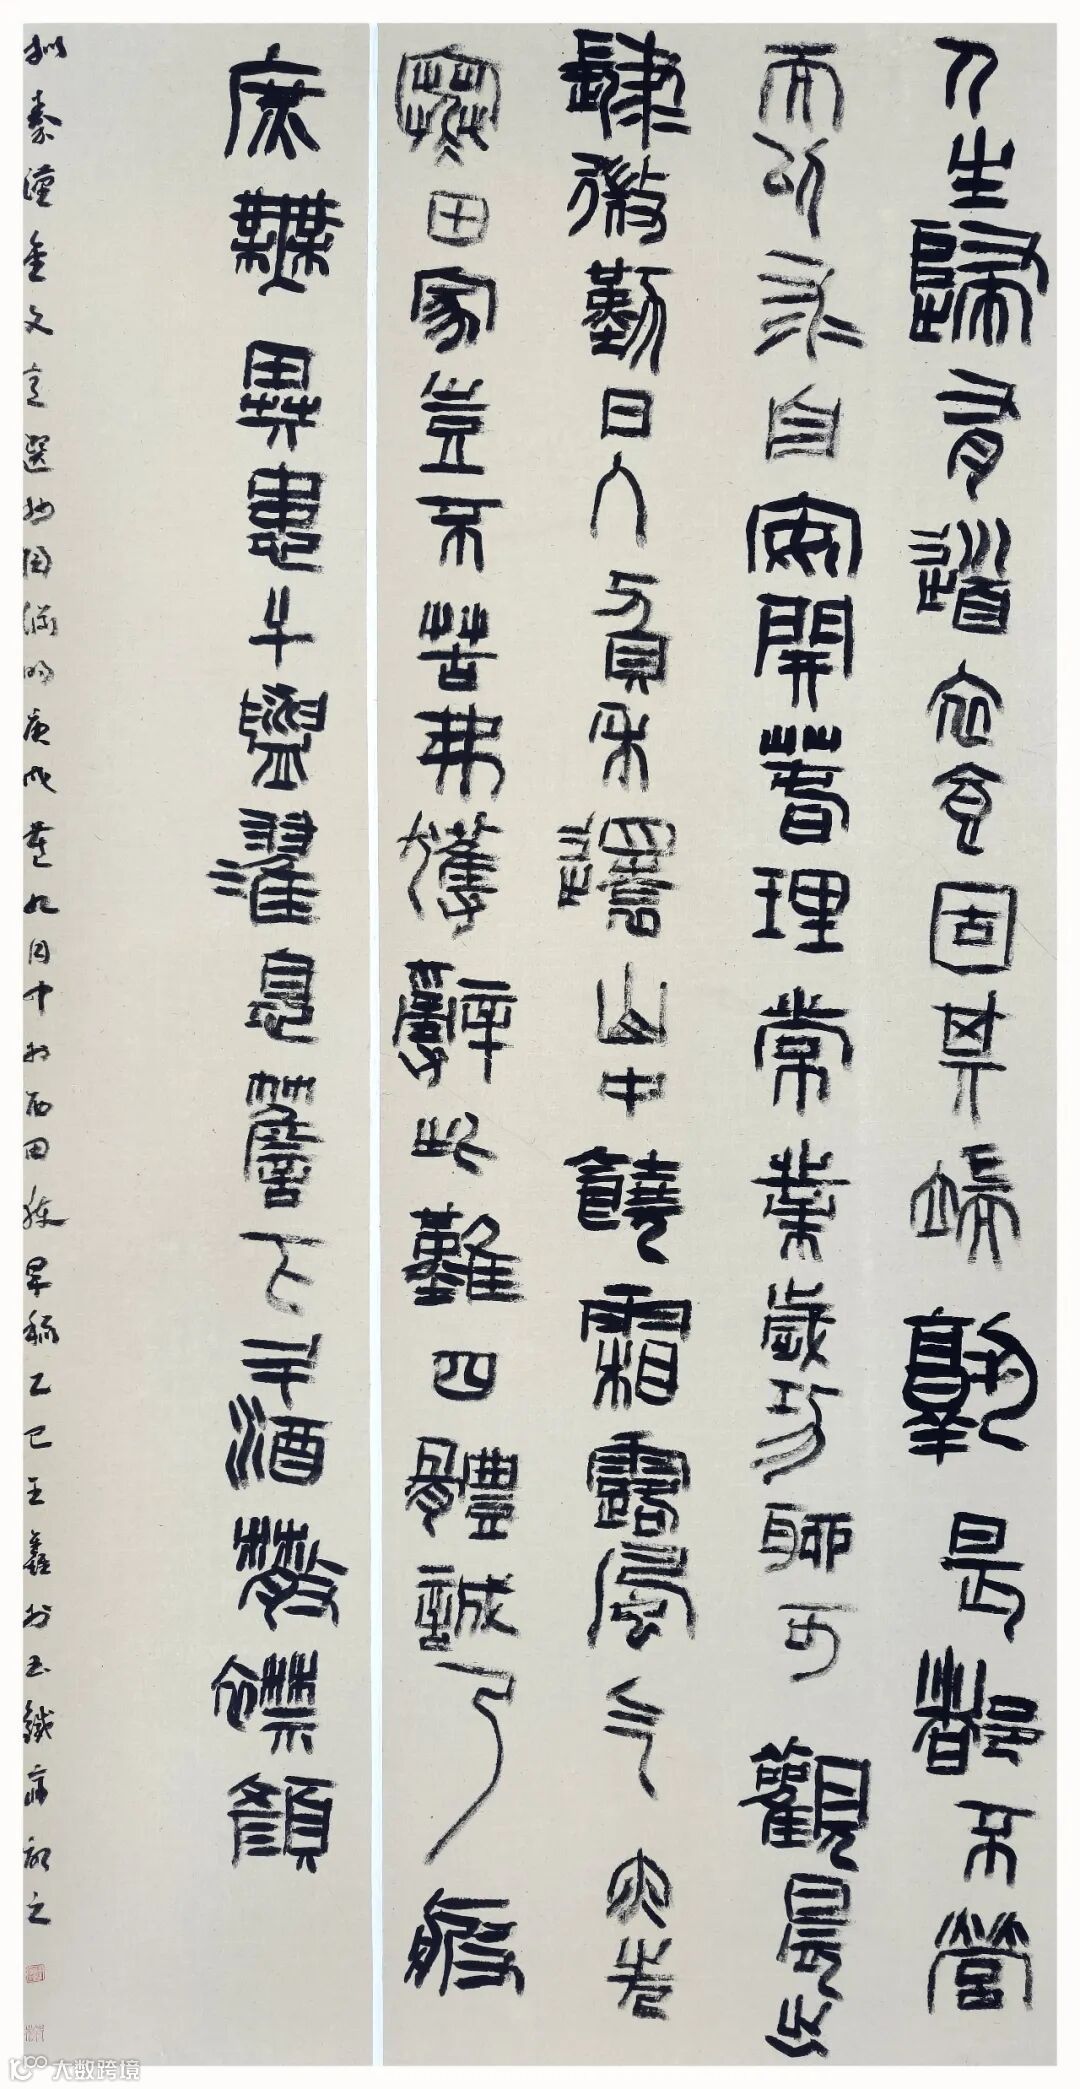 人生歸有道衣食固其端孰是都不營
而以求自安開春理常業歲功聊可觀晨出
肆微勤日入負禾還山中饒霜露風气亦先
寒田家豈不苦弗獲辭此難四體誠乃疲
庶無異患干盥濯息簷下斗酒散襟顏
拟秦漢金文意選抄陶淵明庚戌歲九月中於西田穫早稻乙巳王鑫於玉鐵齋之
大数跨境